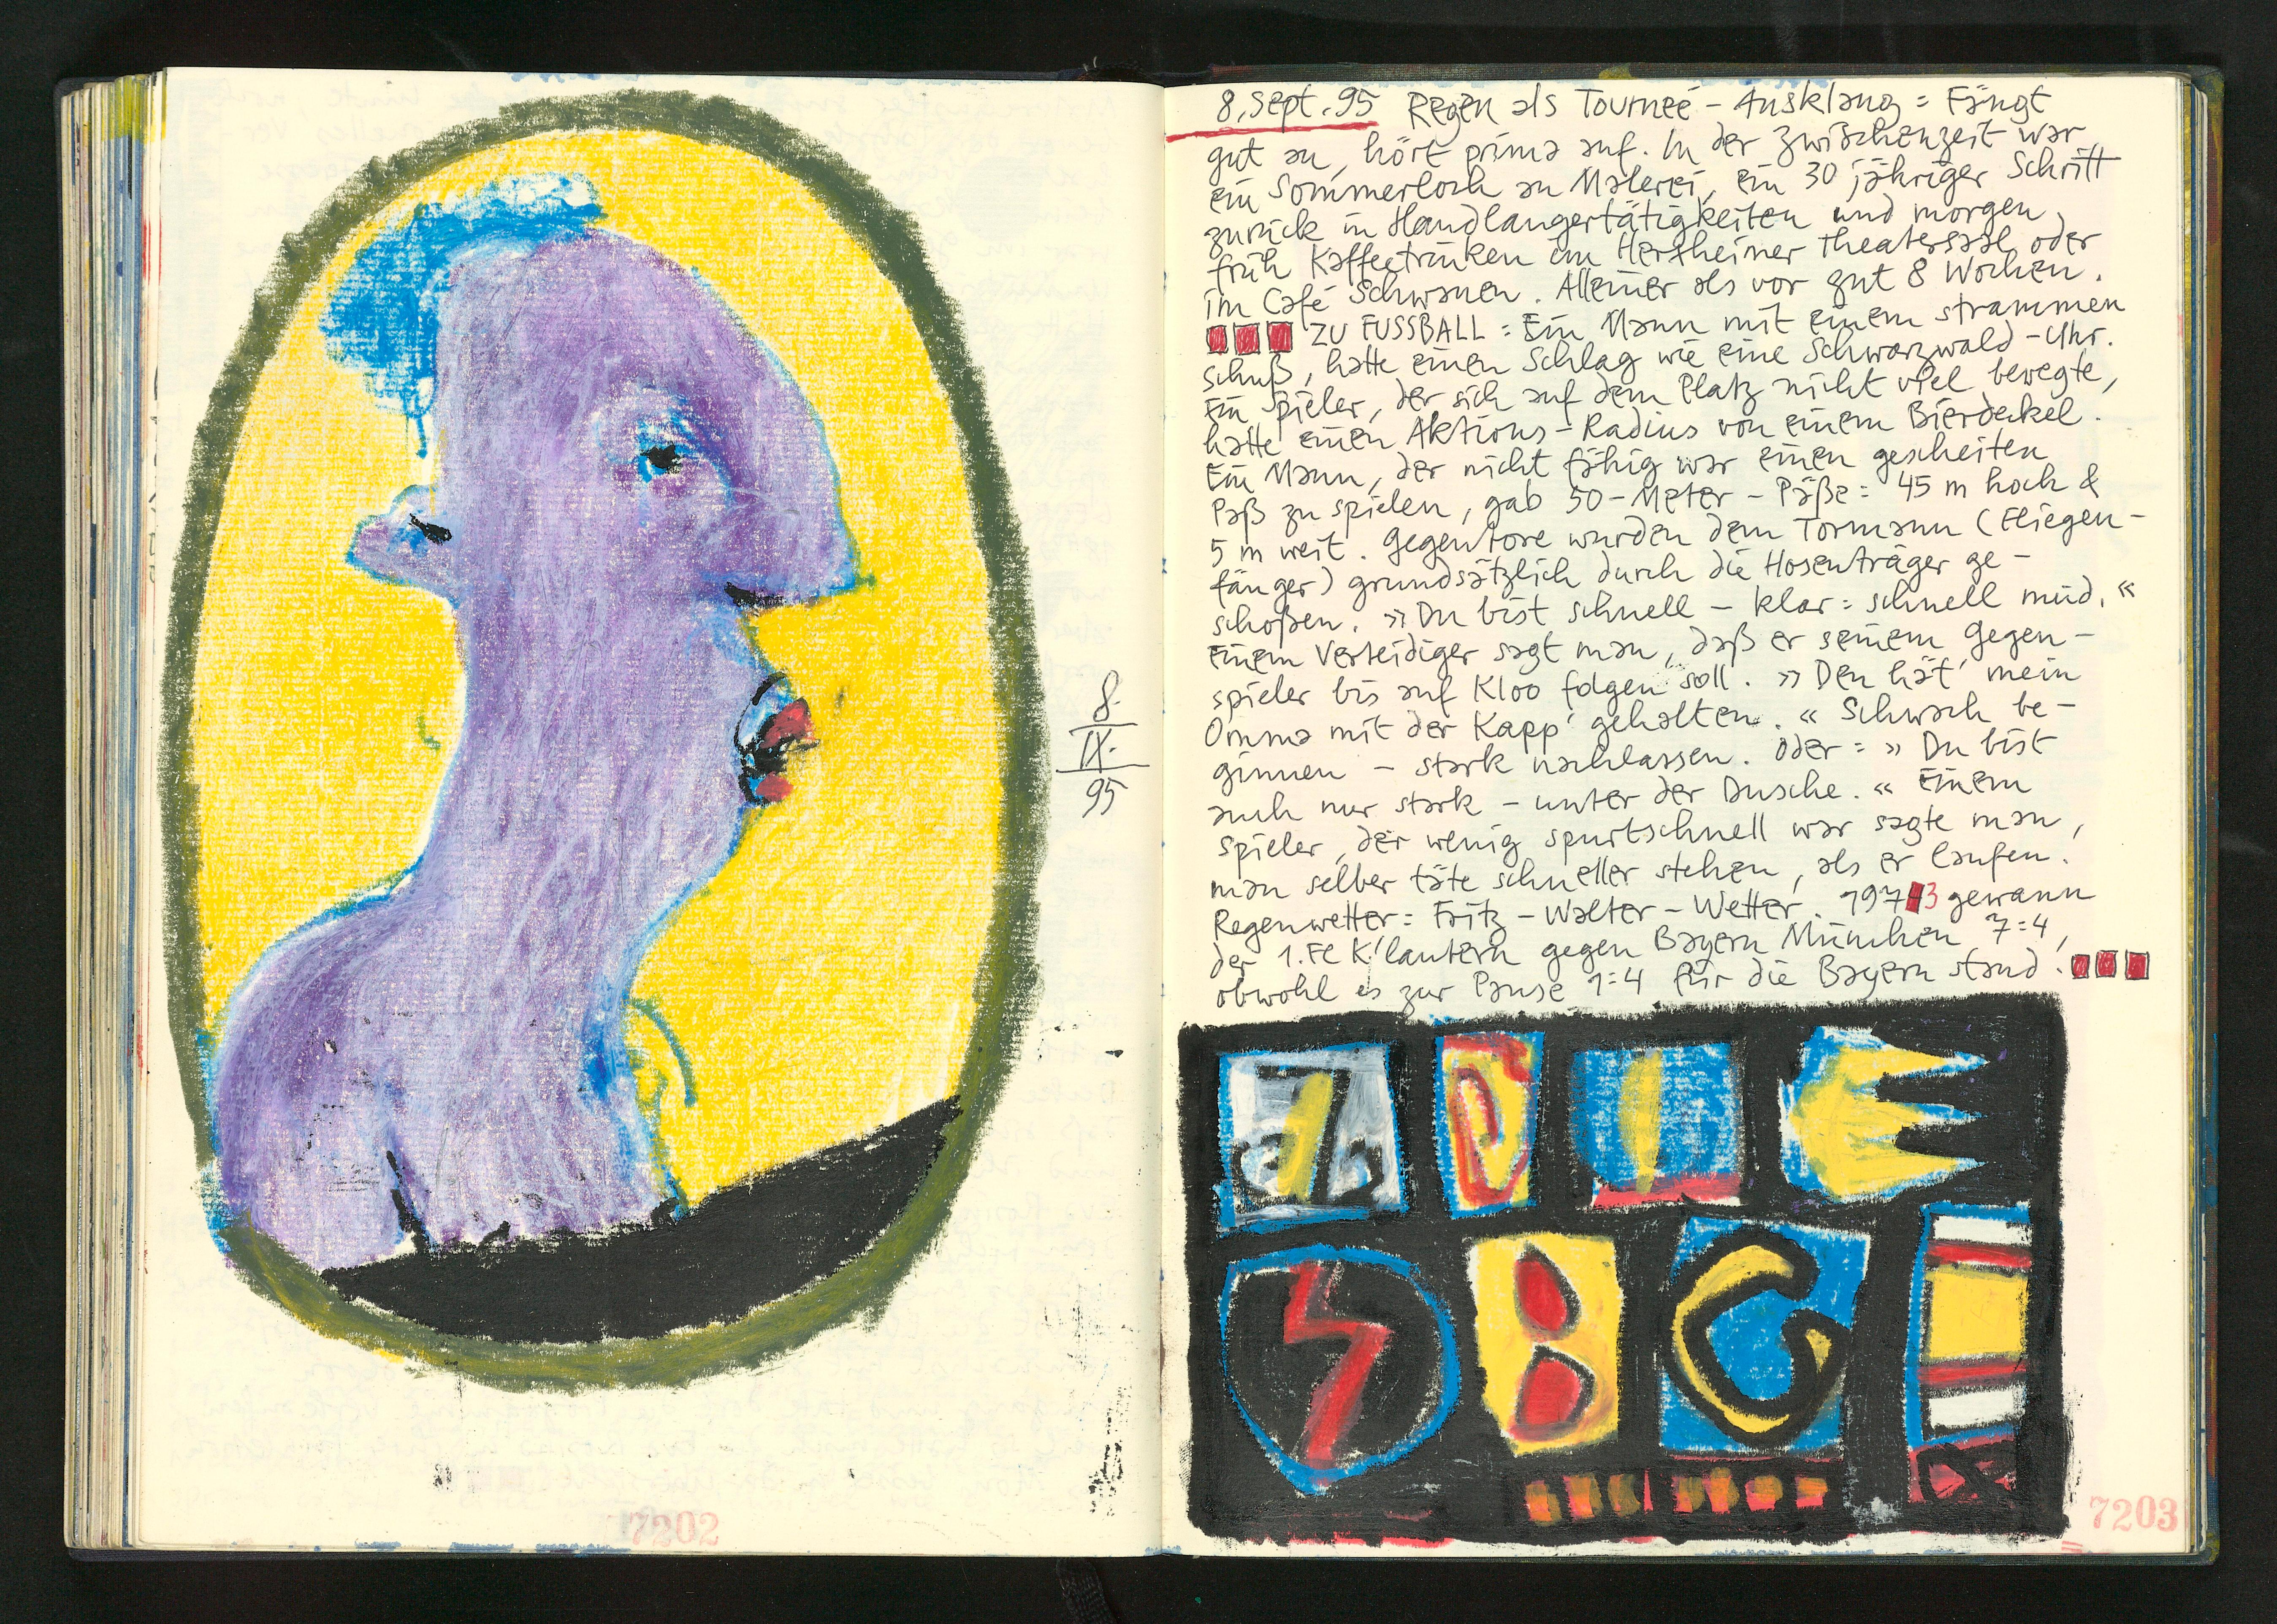 8
IX.
95
7202
8. Sept. 95 Regen als Tourneé - Ausklang = Fängt
gut an, hört prima auf. In der Zwischenzeit war
ein Sommerloch an Malerei, ein 30 jähriger Schritt
zurück in Handlangertätigkeiten und morgen
früh Kaffeetrinken im Herxheimer Theatersaal oder
im Café Schwanen. Alleiner als vor gut 8 Wochen.
ZU FUSSBALL = Ein Mann mit einem strammen
Schuß, hatte einen Schlag wie eine Schwarzwald-Uhr.
Ein Spieler, der sich auf dem Platz nicht viel bewegte,
hatte einen Aktions-Radius von einem Bierdeckel.
Ein Mann, der nicht fähig war einen gescheiten
Paß zu spielen, gab 50-Meter-Päße = 45 m hoch &
5 m weit. Gegentore wurden dem Tormann (Fliegen-
fänger) grundsätzlich durch die Hosenträger ge-
schoßen. »Du bist schnell - klar = schnell müd.«
Einem Verteidiger sagt man, daß er seinem Gegen-
spieler bis auf Kloo folgen soll. »Den hät' mein
Omma mit der Kapp' gehalten.« Schwach be-
ginnen - stark nachlassen. Oder = »Du bist
auch nur stark - unter der Dusche.« Einem
Spieler, der wenig spurtschnell war sagte man,
man selber täte schneller stehen, als er laufen.
Regenwetter = Fritz-Walter-Wetter. 1973 gewann
der 1. FC K'lautern gegen Bayern München 7=4,
obwohl es zur Pause 1=4 für die Bayern stand.
7203